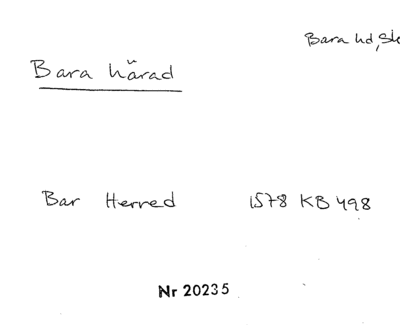 Bara hd, Sk
Bara härad
Bar Herred 1578 KB 498
Nr 20235